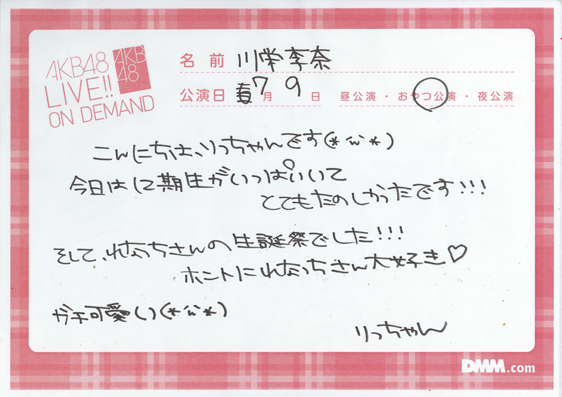 AKB48
LIVE!!
ON DEMAND
AKB
48
名前 川栄李奈
公演日 7月9日 昼公演・おやつ公演・夜公演
こんにちは、りっちゃんです(*´ω`*)
今日は12期生がいっぱいいて
とてもたのしかったです!!!
そして、れなっちさんの生誕祭でした!!!
ホントにれなっちさん大好き♡
ガチ可愛い(*´ω`*)
りっちゃん
DMM.com